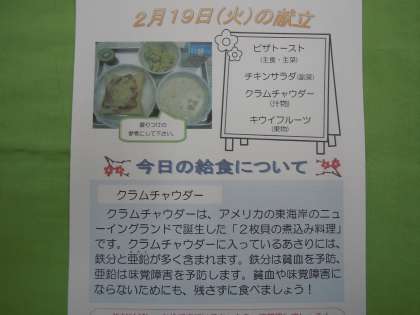 2月19日(火)の献立
ピザトースト
(主食・主菜)
チキンサラダ(副菜)
クラムチャウダー
(汁物)
キウイフルーツ
(果物)
盛りつけの
参考にして下さい。
今日の給食について
クラムチャウダー
クラムチャウダーは、アメリカの東海岸のニュ
ーイングランドで誕生した「2枚貝の煮込み料理」
です。クラムチャウダーに入っているあさりには、
鉄分と亜鉛が多く含まれます。鉄分は貧血を予防、
亜鉛は味覚障害を予防します。貧血や味覚障害に
ならないためにも、残さずに食べましょう！